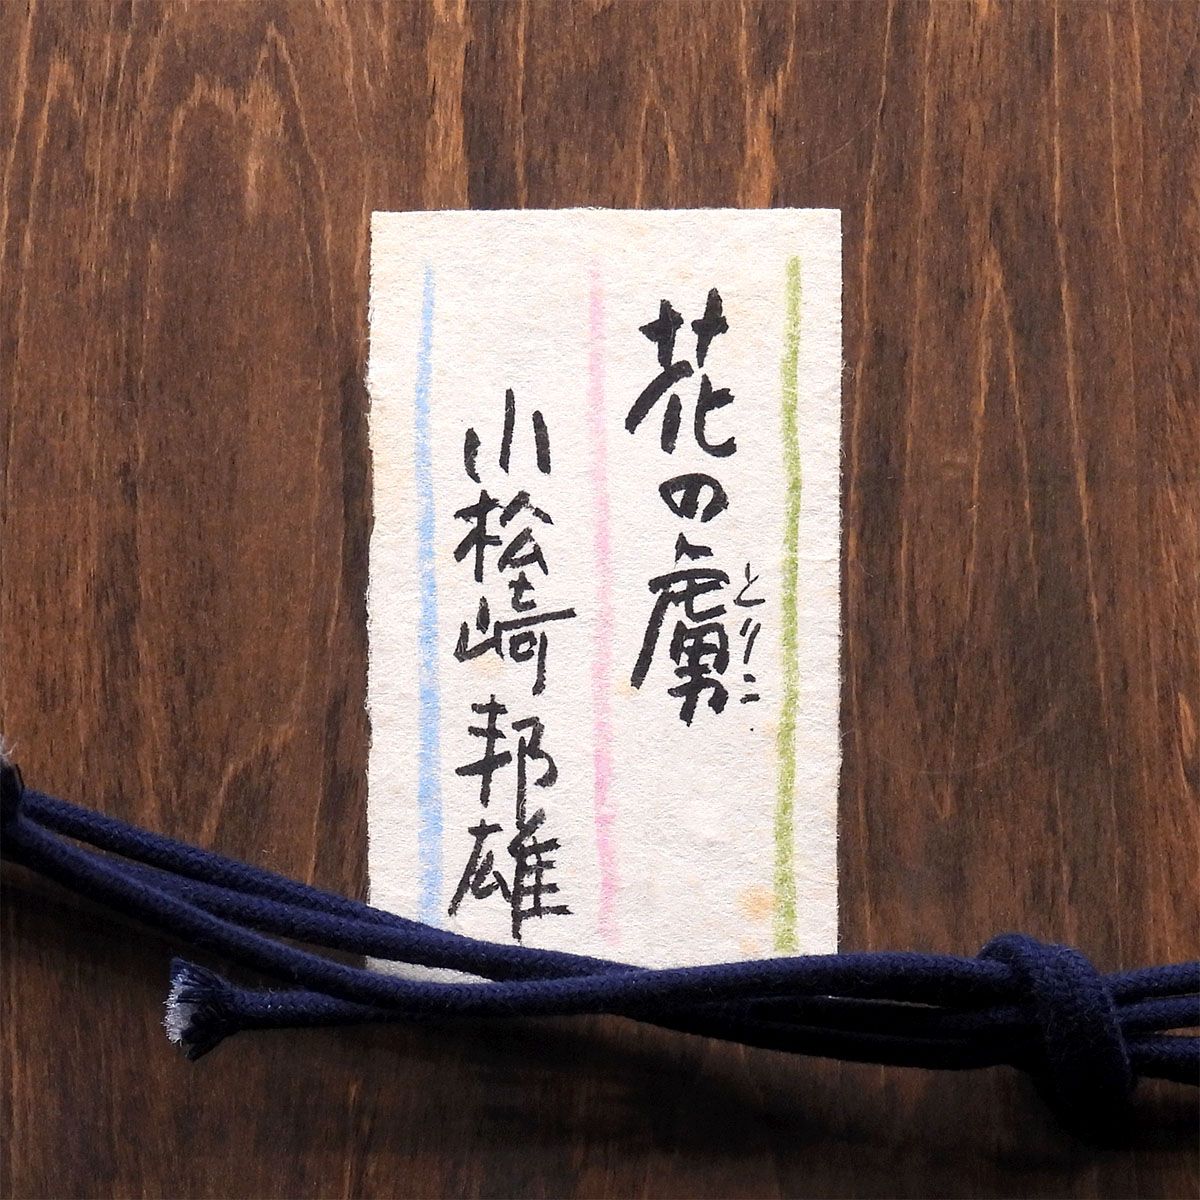 花の虜
とりこ
小松崎邦雄